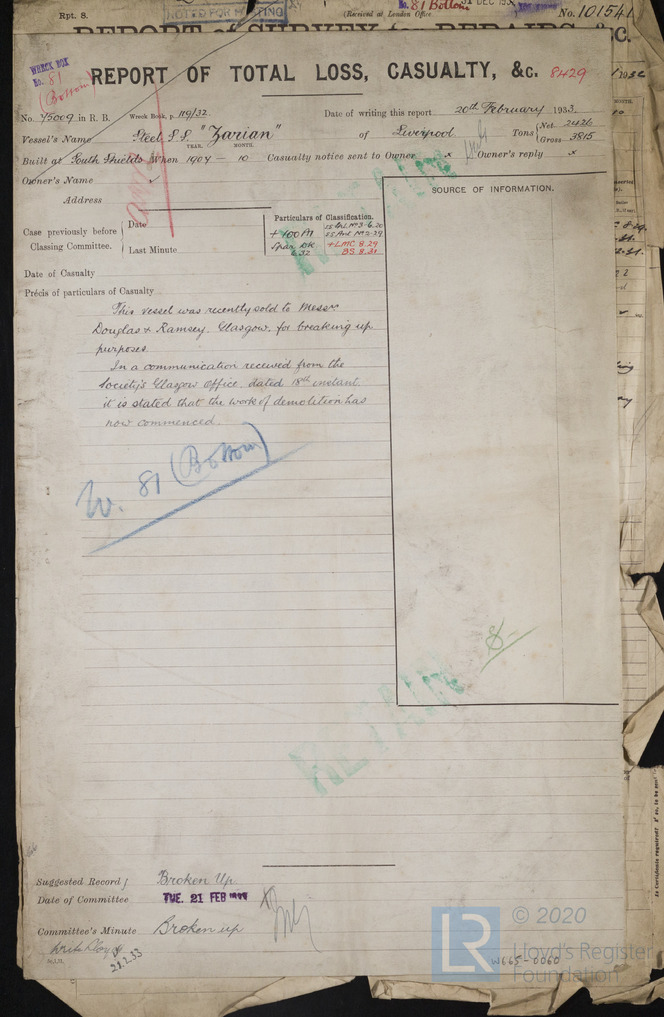 Rpt. 8.
NOTED FOR MEETING
(Received at London Office
No. 81 Bottom
31 DEC 1932
No. 101541
REPORT of SURVEY for REPAIRS, &C.
WRECK BOX
No. 81
(Bottom)
REPORT OF TOTAL LOSS, CASUALTY, &c. 8429
No. 45009 in R. B. Wreck Book, p. 119/32 Date of writing this report 20th February 1933.
Vessel's Name Steel S.S. "Zarian" of Liverpool Tons { Net 2426
Gross 3815
YEAR. MONTH.
Built at South Shields When 1904 - 10 Casualty notice sent to Owner x Owner's reply x
Owner's Name
Address
SOURCE OF INFORMATION.
Case previously before Classing Committee. { Date
Last Minute
Particulars of Classification.
+100A1
Spar Dk
6.32
SS No 3-6.20
SS No 2-29
+LMC 8.29
BS 8.31
Date of Casualty
Précis of particulars of Casualty
This vessel was recently sold to Messrs
Douglas & Ramsey, Glasgow, for breaking up
purposes.
In a communication received from the
Society's Glasgow Office, dated 18th instant
it is stated that the work of demolition has
now commenced.
W. 81 (Bottom)
RETAIN
RETAIN
Suggested Record Broken Up
Date of Committee TUE. 21 FEB
Committee's Minute Broken up
21.2.33
W665-0060
LR
© 2020
Lloyd's Register
Foundation